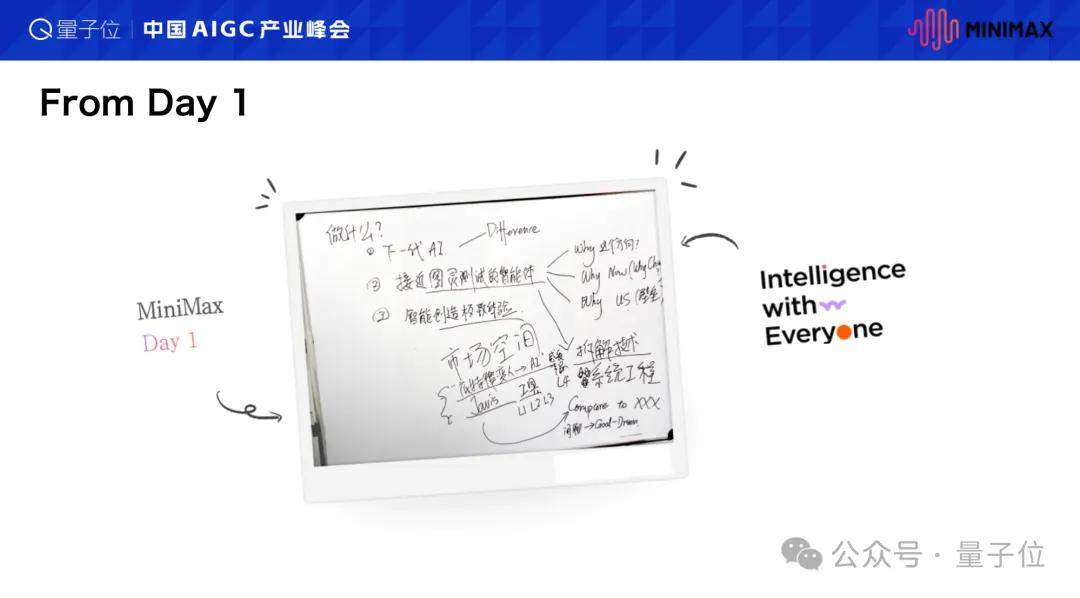 量子位 | 中国AIGC产业峰会
MINIMAX
From Day 1
MiniMax
Day 1
做什么?
① 下一代 AI
Difference
② 接近图灵测试的智能体
Why 这个方向?
Why Now
Why US
③ 智能创造极致体验.
市场空间
拆解技术
系统工程
AI
L4
Javis
工具
L1 L2 L3
Compare to XXX
闲聊→Goal-Driven
Intelligence
with
Everyone
公众号 · 量子位